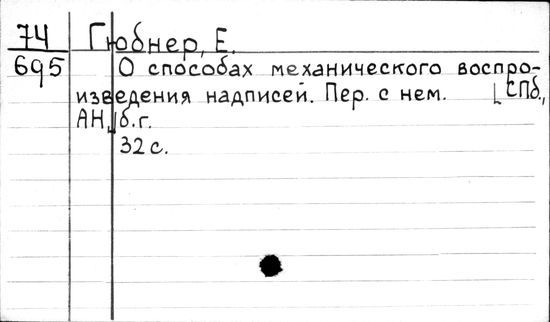 74 Гюбнер, Е.
695 О способах механического воспро-
изведения надписей. Пер. с нем. [СПб.,
АН,] б.г.
32 с.